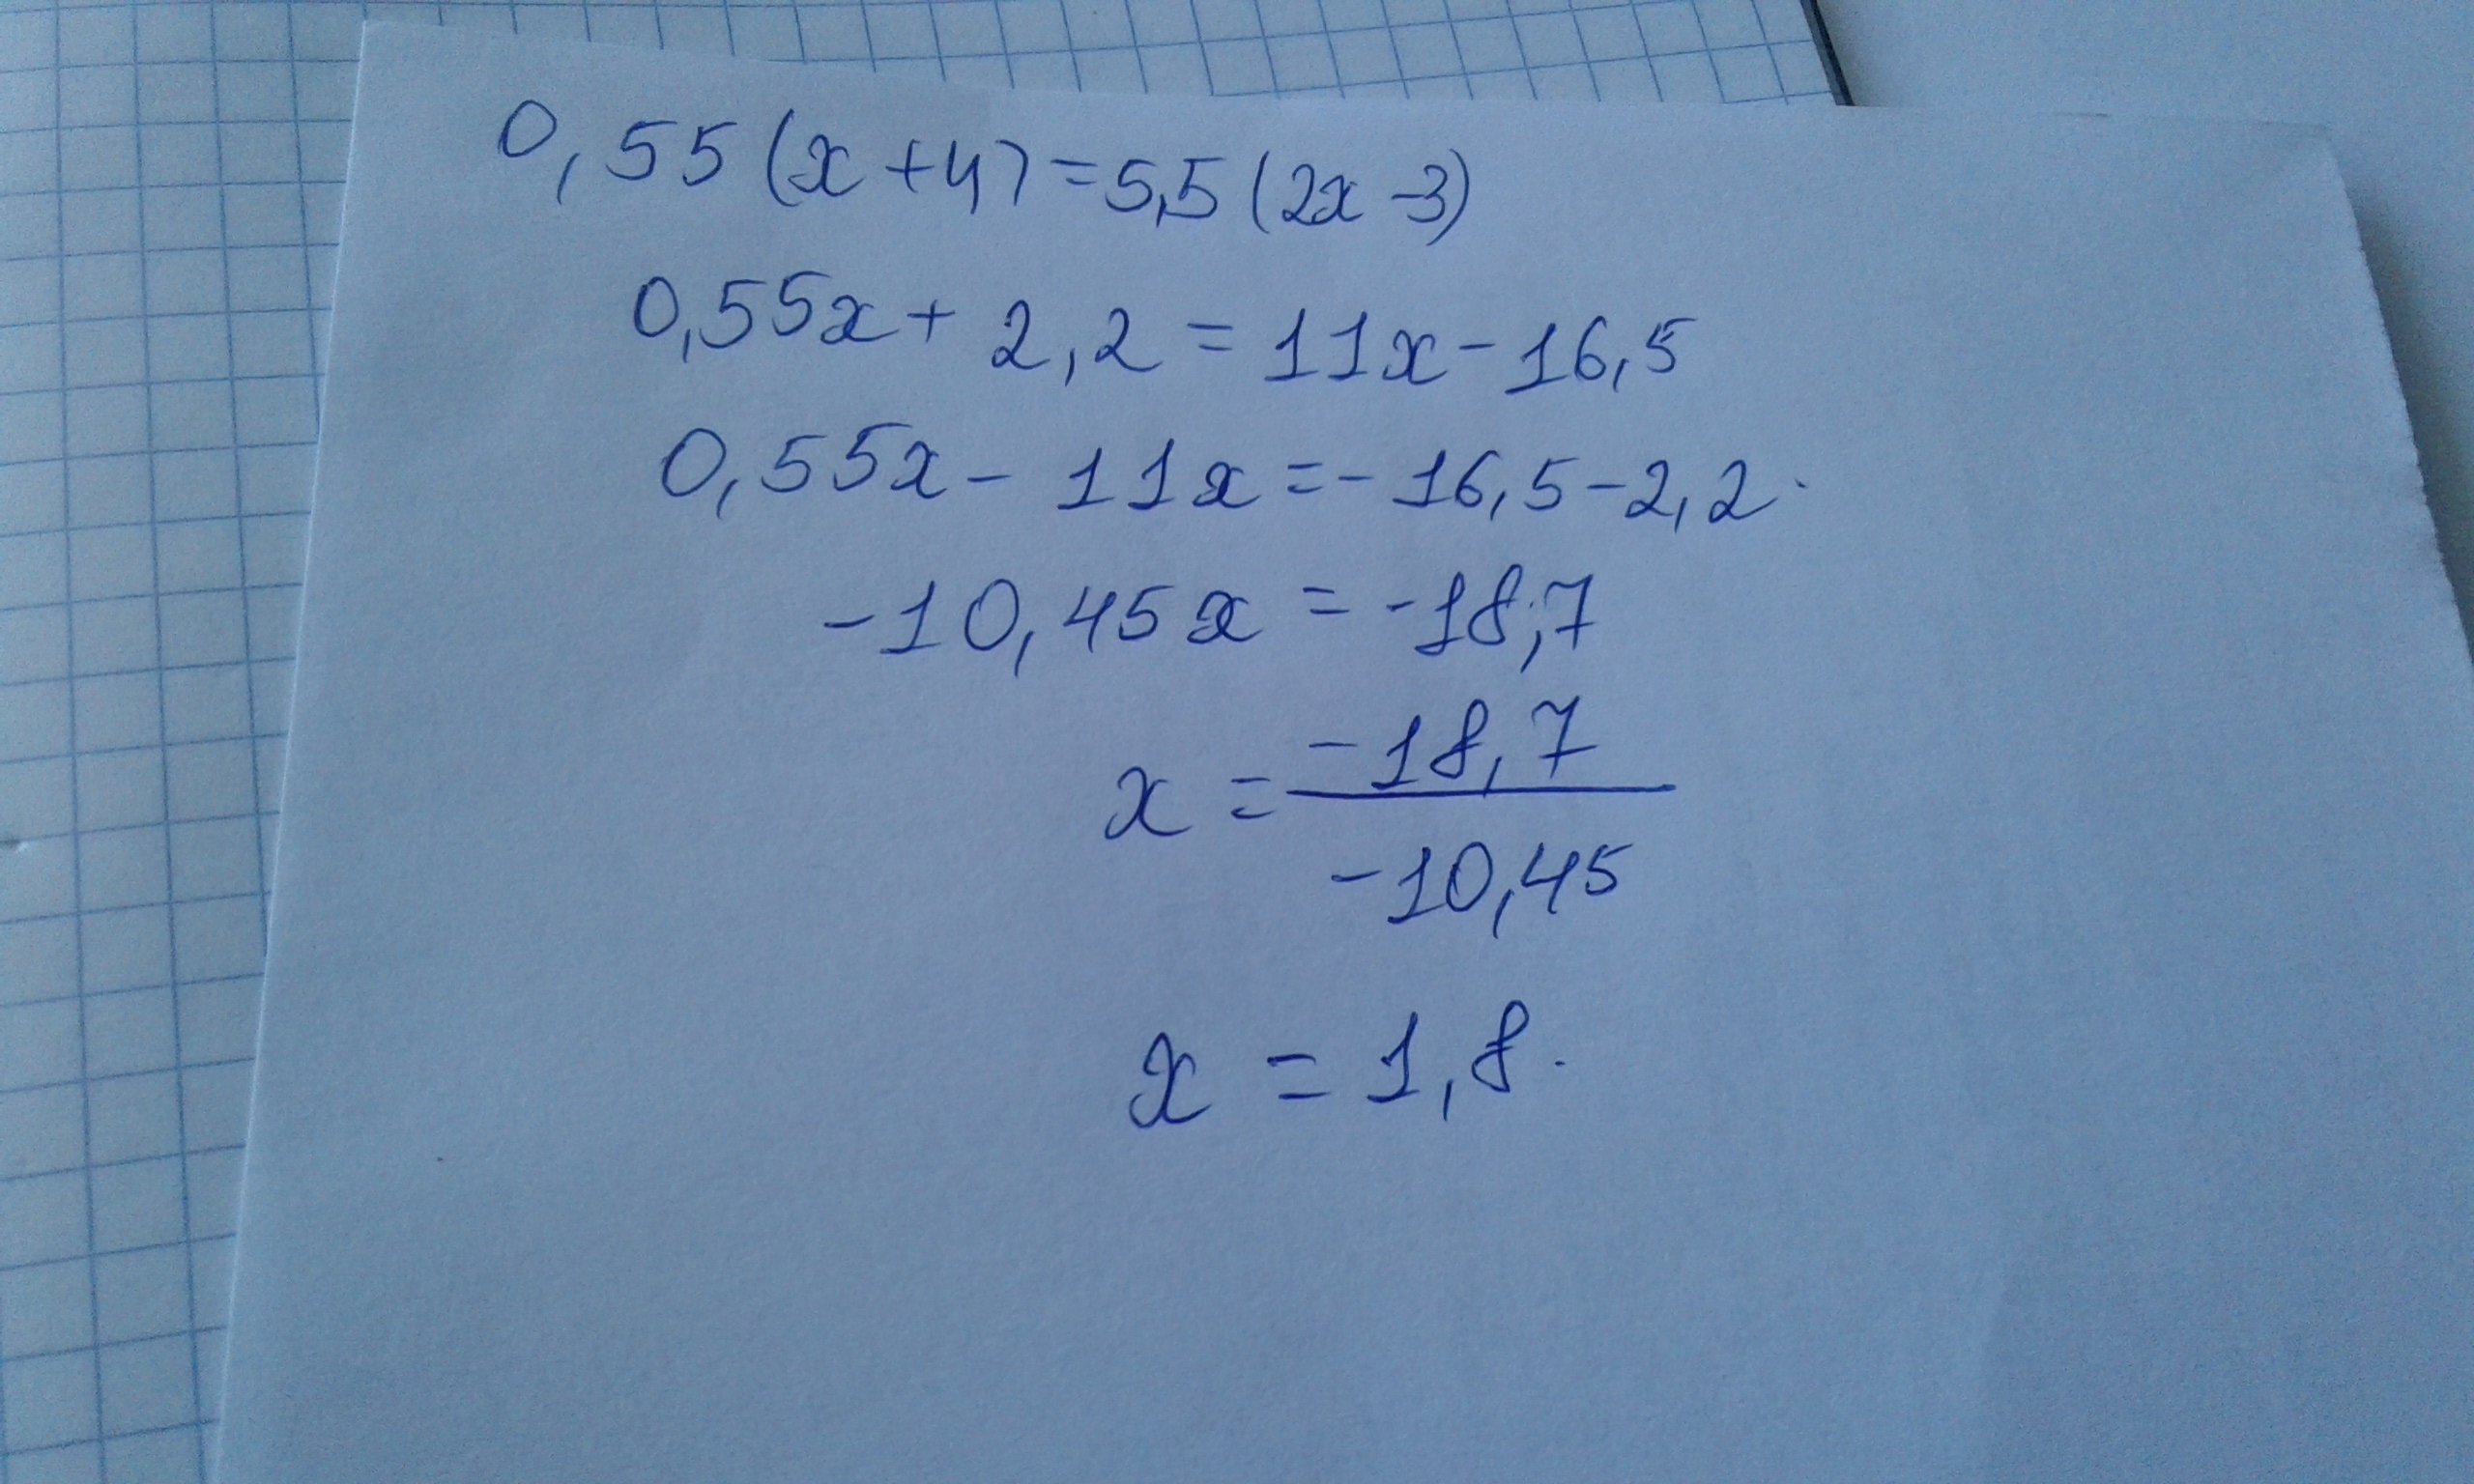 0,55(x+4)=5,5(2x-3)
0,55x+2,2=11x-16,5
0,55x-11x=-16,5-2,2.
-10,45x=-18,7
x=-18,7/-10,45
x=1,8.